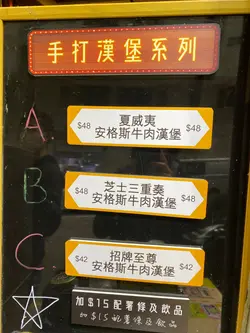 手打漢堡系列
A.
夏威夷
$48 安格斯牛肉漢堡 $48
B.
芝士三重奏
$48 安格斯牛肉漢堡 $48
C
招牌至尊
$42 安格斯牛肉漢堡 $42
加$15配薯條及飲品
加$15配薯條及飲品